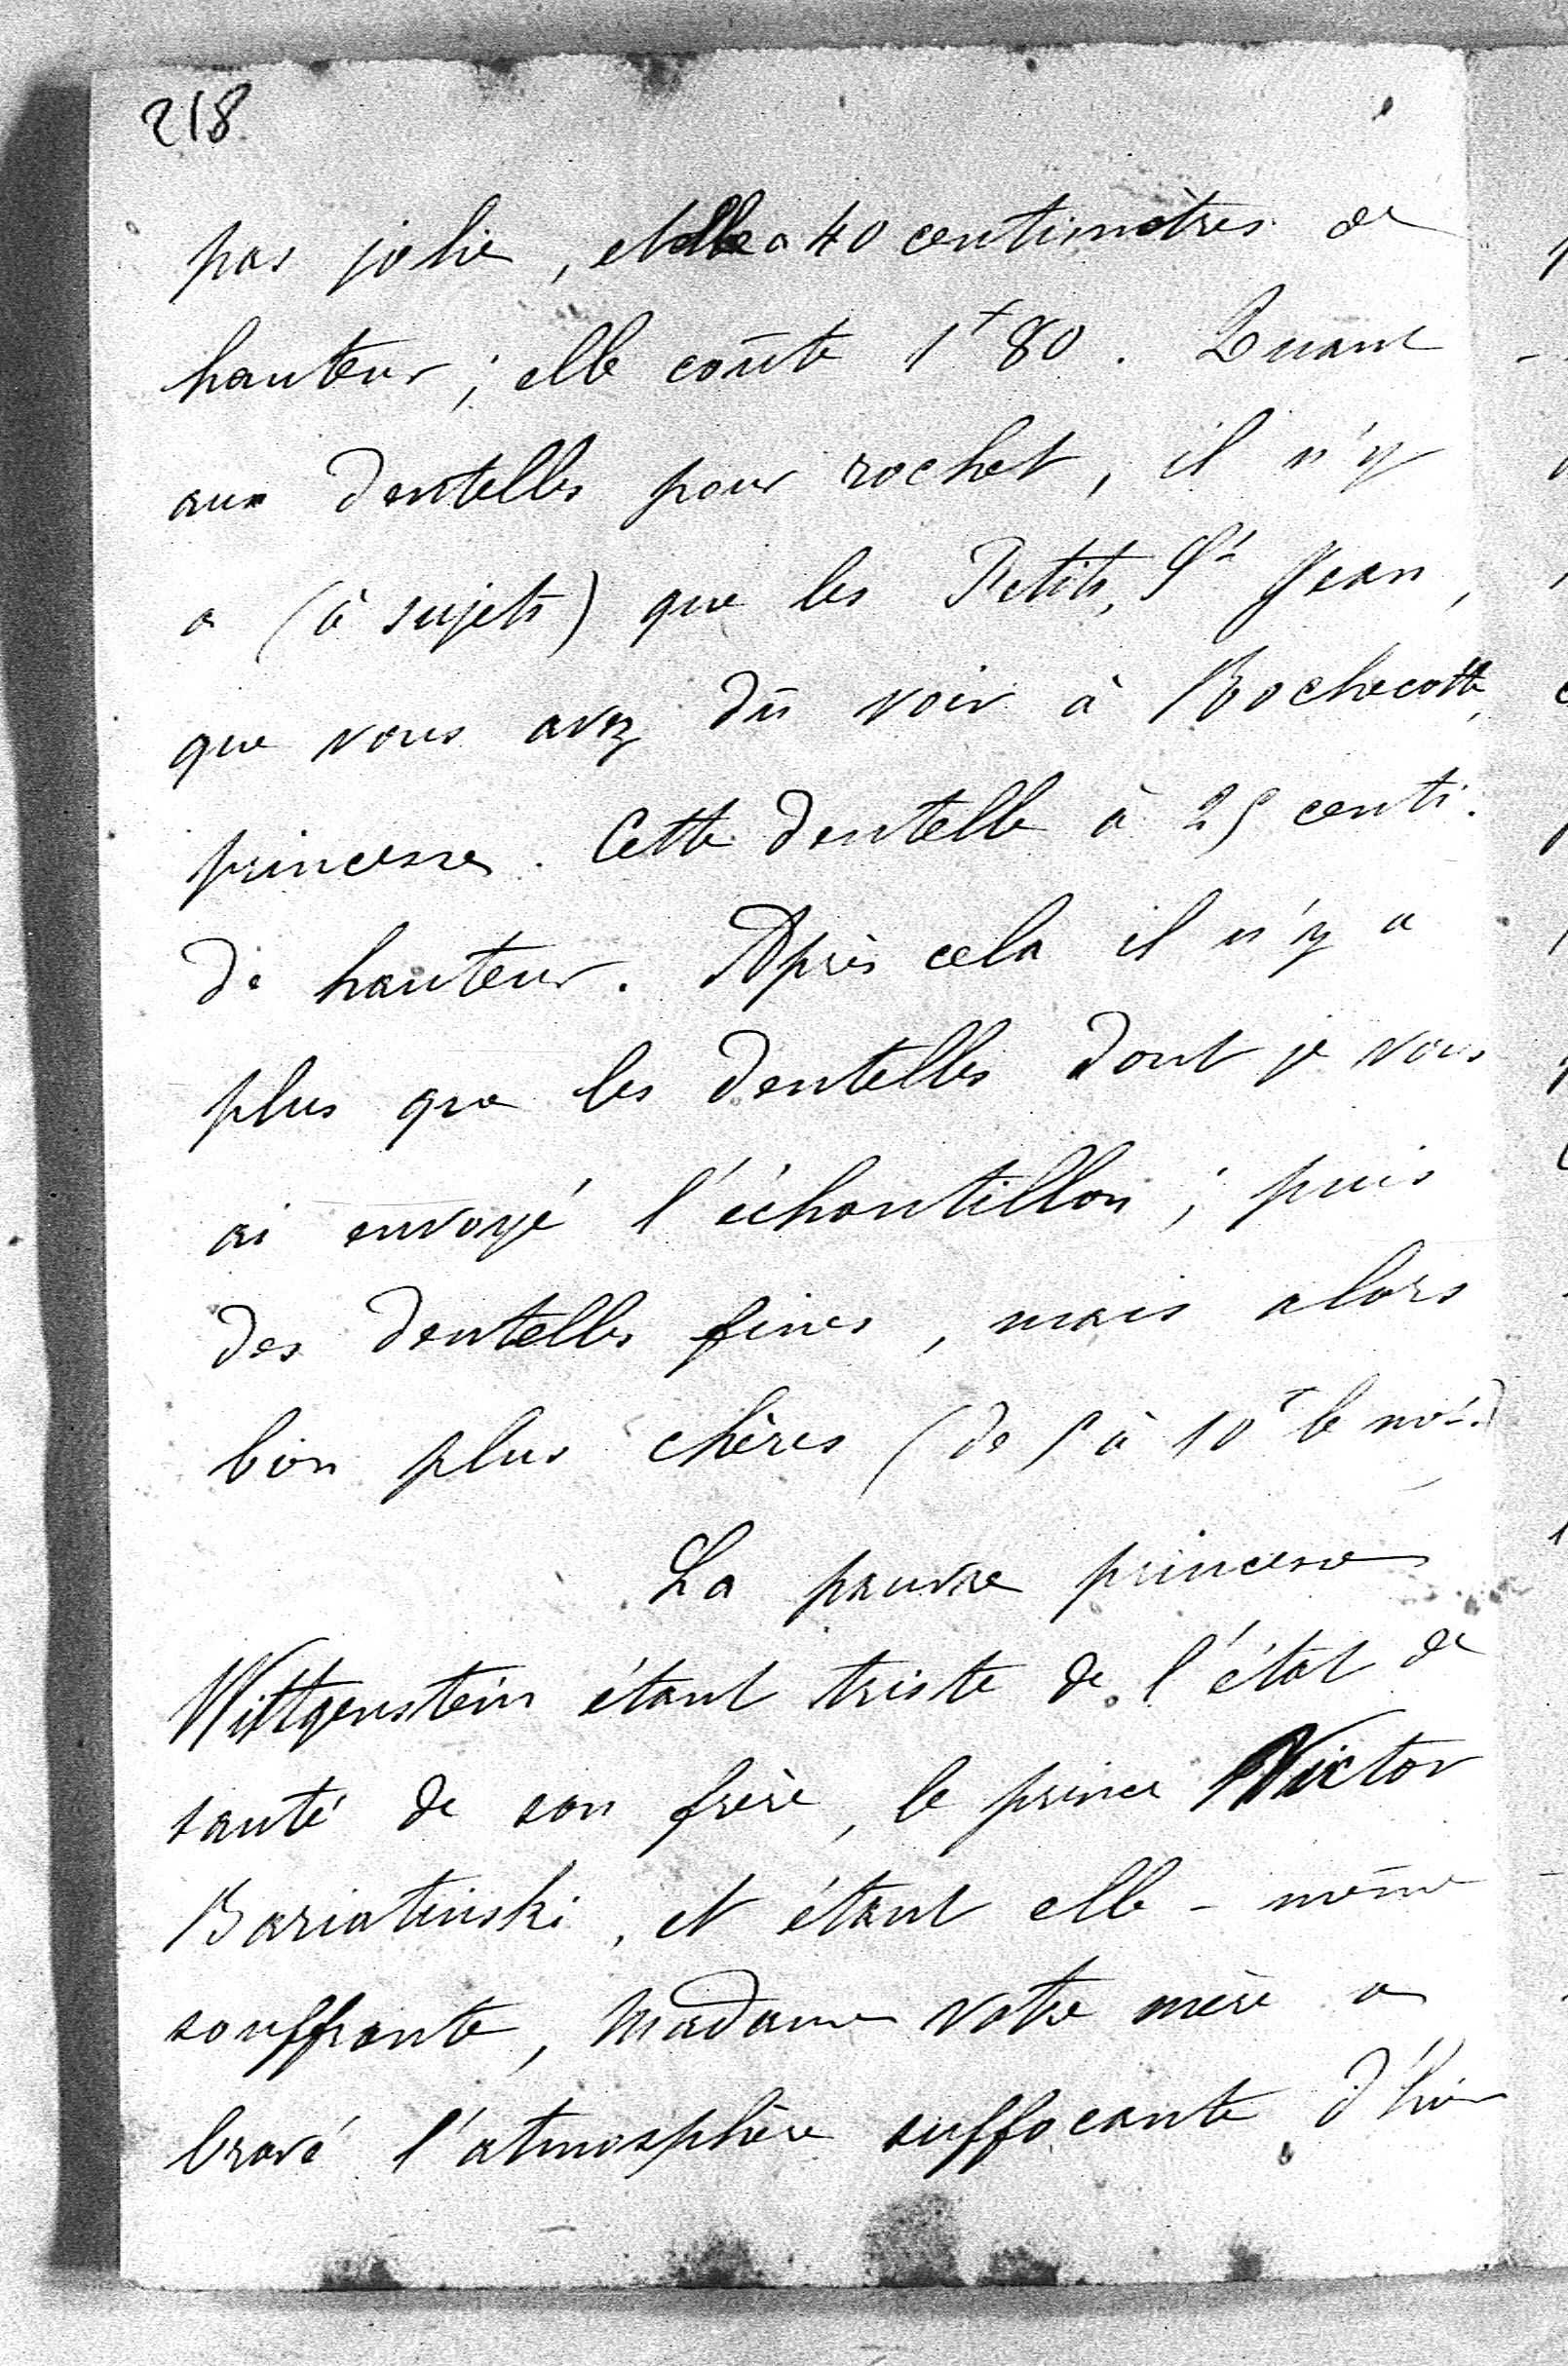 218
pas jolie, et elle a 40 centimètres de
hauteur ; elle coûte 1f 80. Quant
aux dentelles pour rochet, il n'y
a (à sujets) que les Petits St Jean,
que vous avez dû voir à Rochecotte,
princesse. Cette dentelle à 25 centi.
de hauteur. Après cela il n'y a
plus que les dentelles dont je vous
ai envoyé l'échantillon ; puis
des dentelles fines, mais alors
bien plus chères (de 5 à 10f le mèt.)
La pauvre princesse
Wittgenstein étant triste de l'état de
santé de son frère, le prince Victor
Bariatinski, et étant elle-même
souffrante, Madame votre mère a
bravé l'atmosphère suffocante d'hier